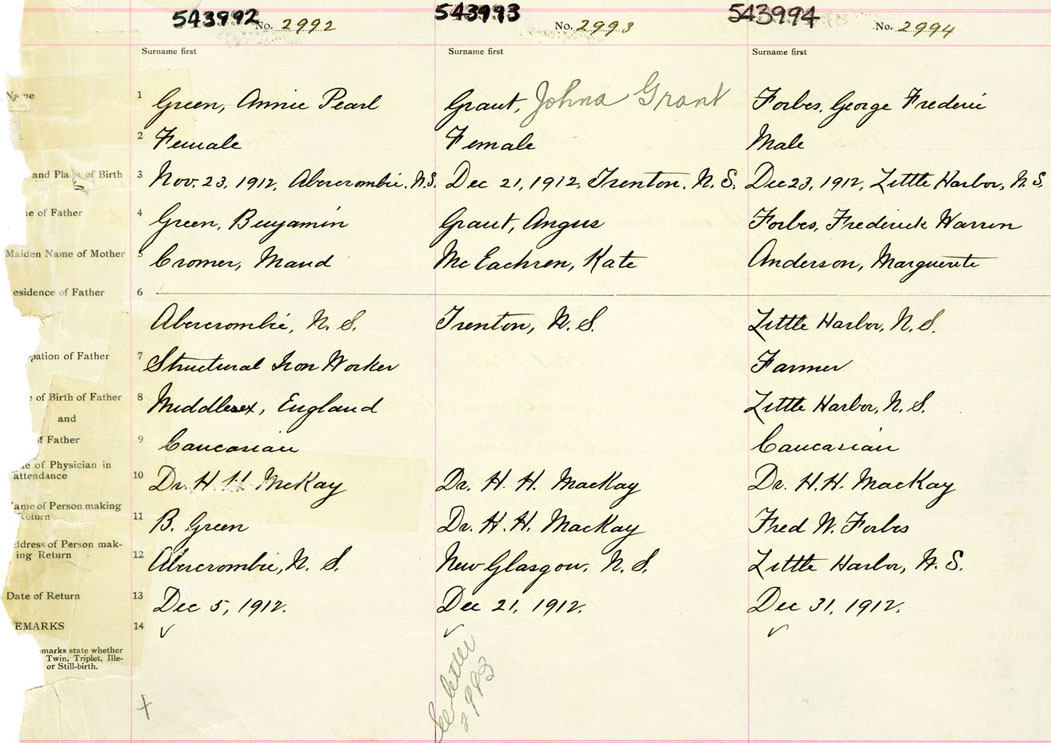 543992 No. 2992 543993 No. 2993 543994 No. 2994
Surname first Surname first Surname first
Name 1 Green, Annie Pearl Grant, Johna Grant Forbes, George Frederic
2 Female Female Male
and Place of Birth 3 Nov. 23, 1912, Abercrombie, N.S. Dec 21, 1912, Trenton, N.S. Dec 23, 1912, Little Harbor, N.S.
e of Father 4 Green, Benjamin Grant, Angus Forbes, Frederick Warren
Maiden Name of Mother 5 Cromer, Maud McEachren, Kate Anderson, Marguerite
esidence of Father 6
Abercrombie, N.S. Trenton, N.S. Little Harbor, N.S.
pation of Father 7 Structural Iron Worker Farmer
e of Birth of Father 8 Middlesex, England Little Harbor, N.S.
and
f Father 9 Caucasian Caucasian
e of Physician in
attendance 10 Dr. H. H. McKay Dr. H. H. MacKay Dr. H. H. MacKay
ame of Person making
Return 11 B. Green Dr. H. H. MacKay Fred W. Forbes
ddress of Person mak-
ing Return 12 Abercrombie, N.S. New Glasgow, N.S. Little Harbor, N.S.
Date of Return 13 Dec 5, 1912. Dec 21, 1912. Dec 31, 1912.
EMARKS 14 ✓ ✓ ✓
marks state whether
Twin, Triplet, Ille-
or Still-birth.
See letter
2993